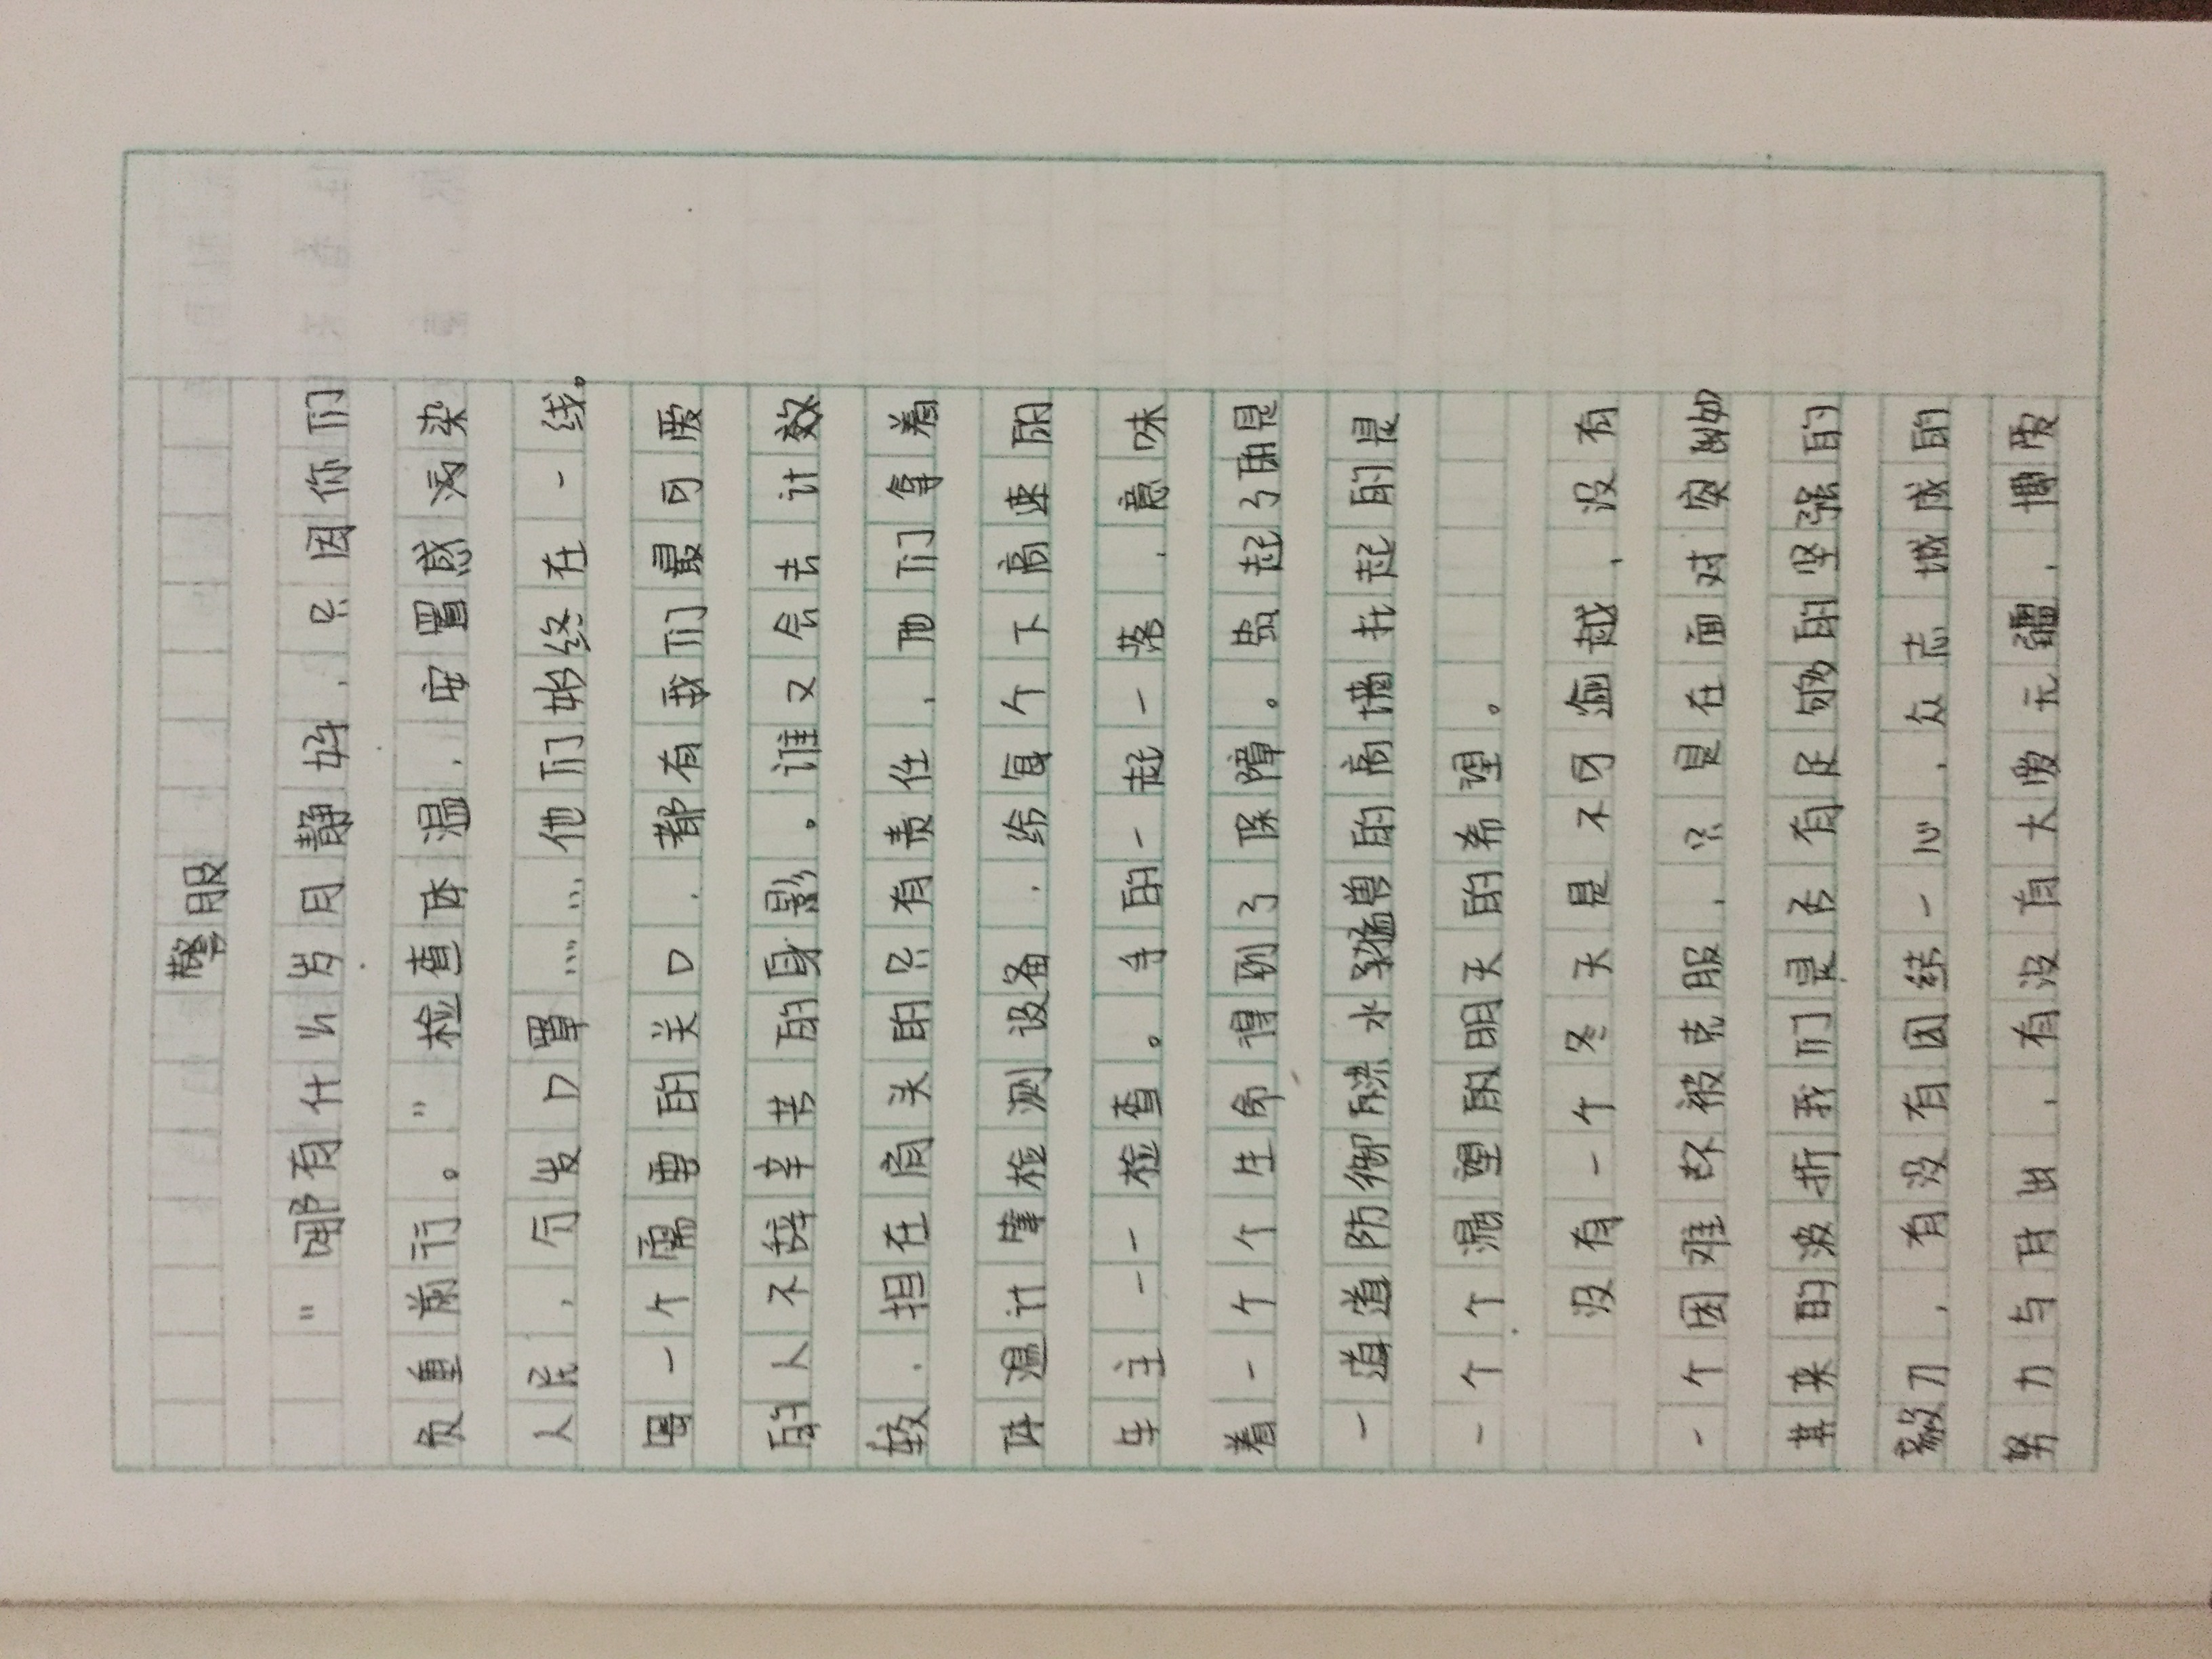 警服
“哪有什么岁月静好，只因你们
负重前行。”检查体温，安置感染
人民，分发口罩……他们始终在一线。
每一个需要的关口，都有我们最可爱
的人不辞辛苦的身影。谁又会去计效
较，担在肩头的只有责任，他们拿着
体温计肇检测设备，给每个下高速的
车主一一检查。手的一起一落，意味
着一个个生命得到了保障。竖起了的是
一道道防御洪水猛兽的高墙托起的是
一个个渴望的明天的希望。
没有一个冬天是不可逾越，没有
一个困难不被克服，只是在面对突如
其来的波折我们是否有足够的坚强的
毅力，有没有团结一心，众志城成的
努力与付出，有没有大爱无疆，博爱